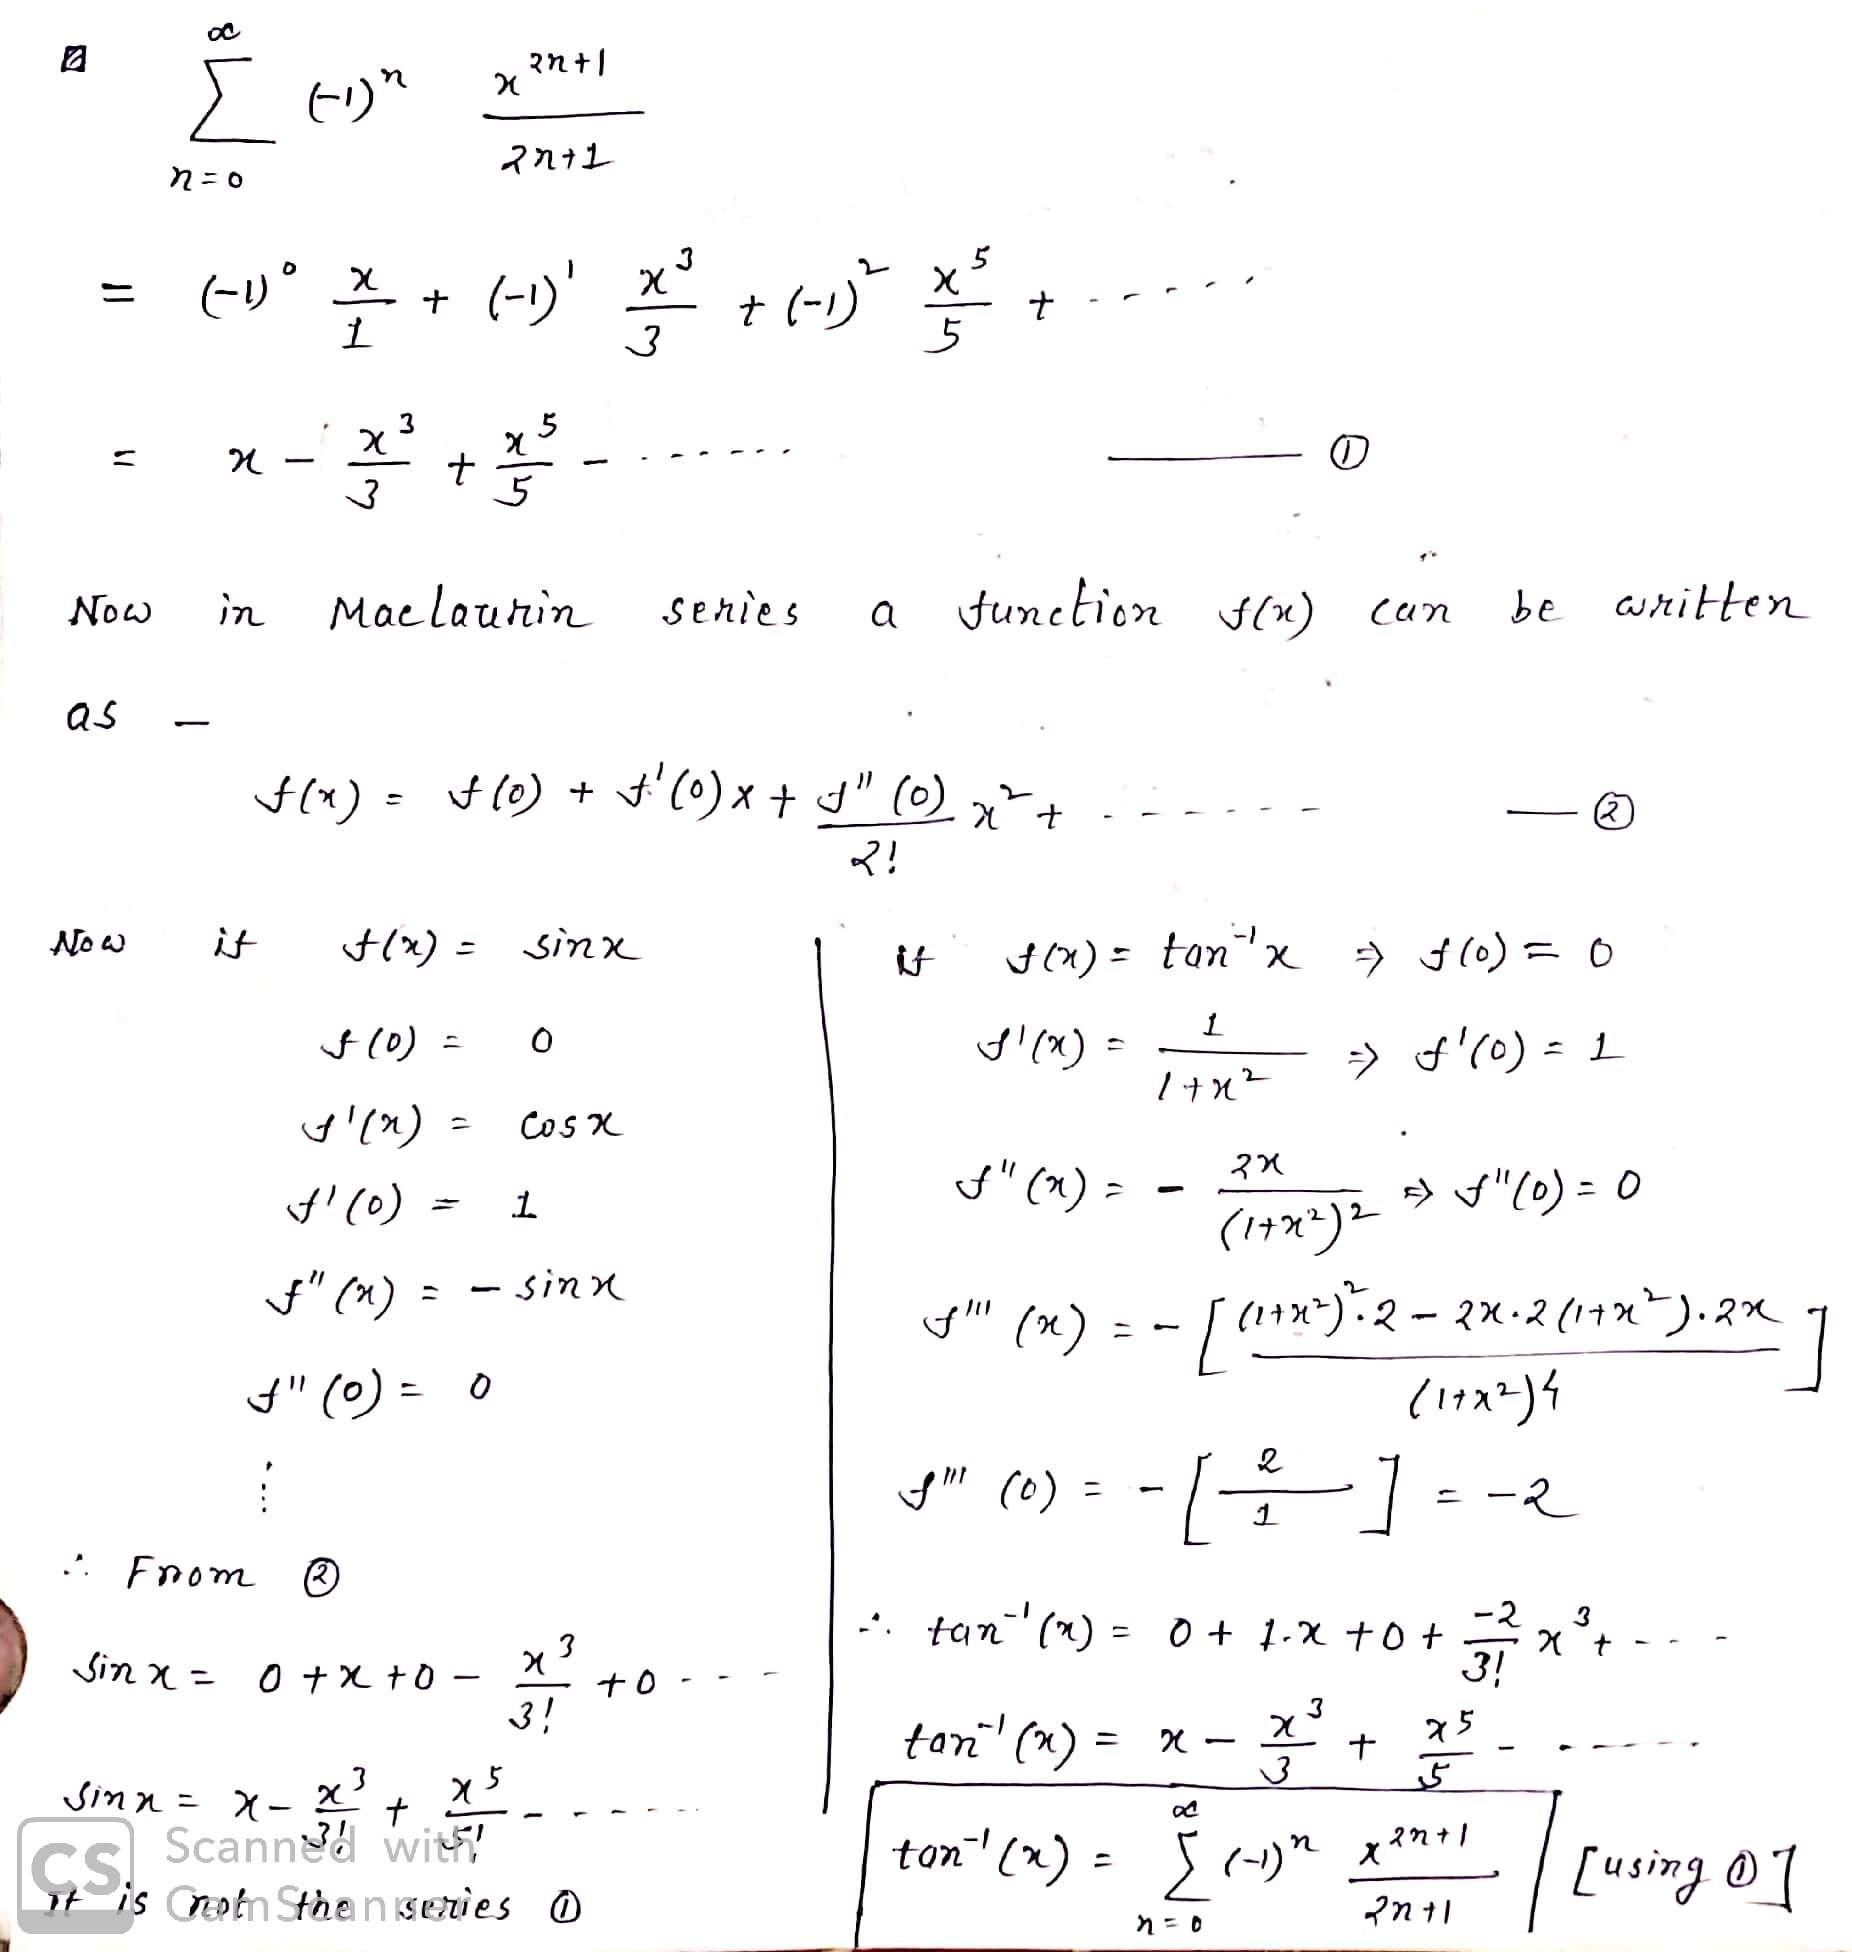 ∞
Σ (-1)ⁿ x²ⁿ⁺¹ / 2n+1
n=0
= (-1)⁰ x/1 + (-1)¹ x³/3 + (-1)² x⁵/5 + ......
= x - x³/3 + x⁵/5 - ...... —— ①
Now in Maclaurin series a function f(x) can be written
as —
f(x) = f(0) + f'(0)x + f''(0)/2! x² + ...... — ②
Now if f(x) = sinx
f(0) = 0
f'(x) = cosx
f'(0) = 1
f''(x) = - sinx
f''(0) = 0
⋮
∴ From ②
sinx = 0 + x + 0 - x³/3! + 0 ...
sinx = x - x³/3! + x⁵/5! - ......
It is not the series ①
if f(x) = tan⁻¹x ⇒ f(0) = 0
f'(x) = 1/1+x² ⇒ f'(0) = 1
f''(x) = - 2x/(1+x²)² ⇒ f''(0) = 0
f'''(x) = - [ (1+x²)².2 - 2x.2(1+x²).2x / (1+x²)4 ]
f'''(0) = - [ 2/1 ] = -2
∴ tan⁻¹(x) = 0 + 1.x + 0 + -2/3! x³ + ...
tan⁻¹(x) = x - x³/3 + x⁵/5 - ......
tan⁻¹(x) = ∞ Σ n=0 (-1)ⁿ x²ⁿ⁺¹ / 2n+1 [using ①]
CS Scanned with
CamScanner